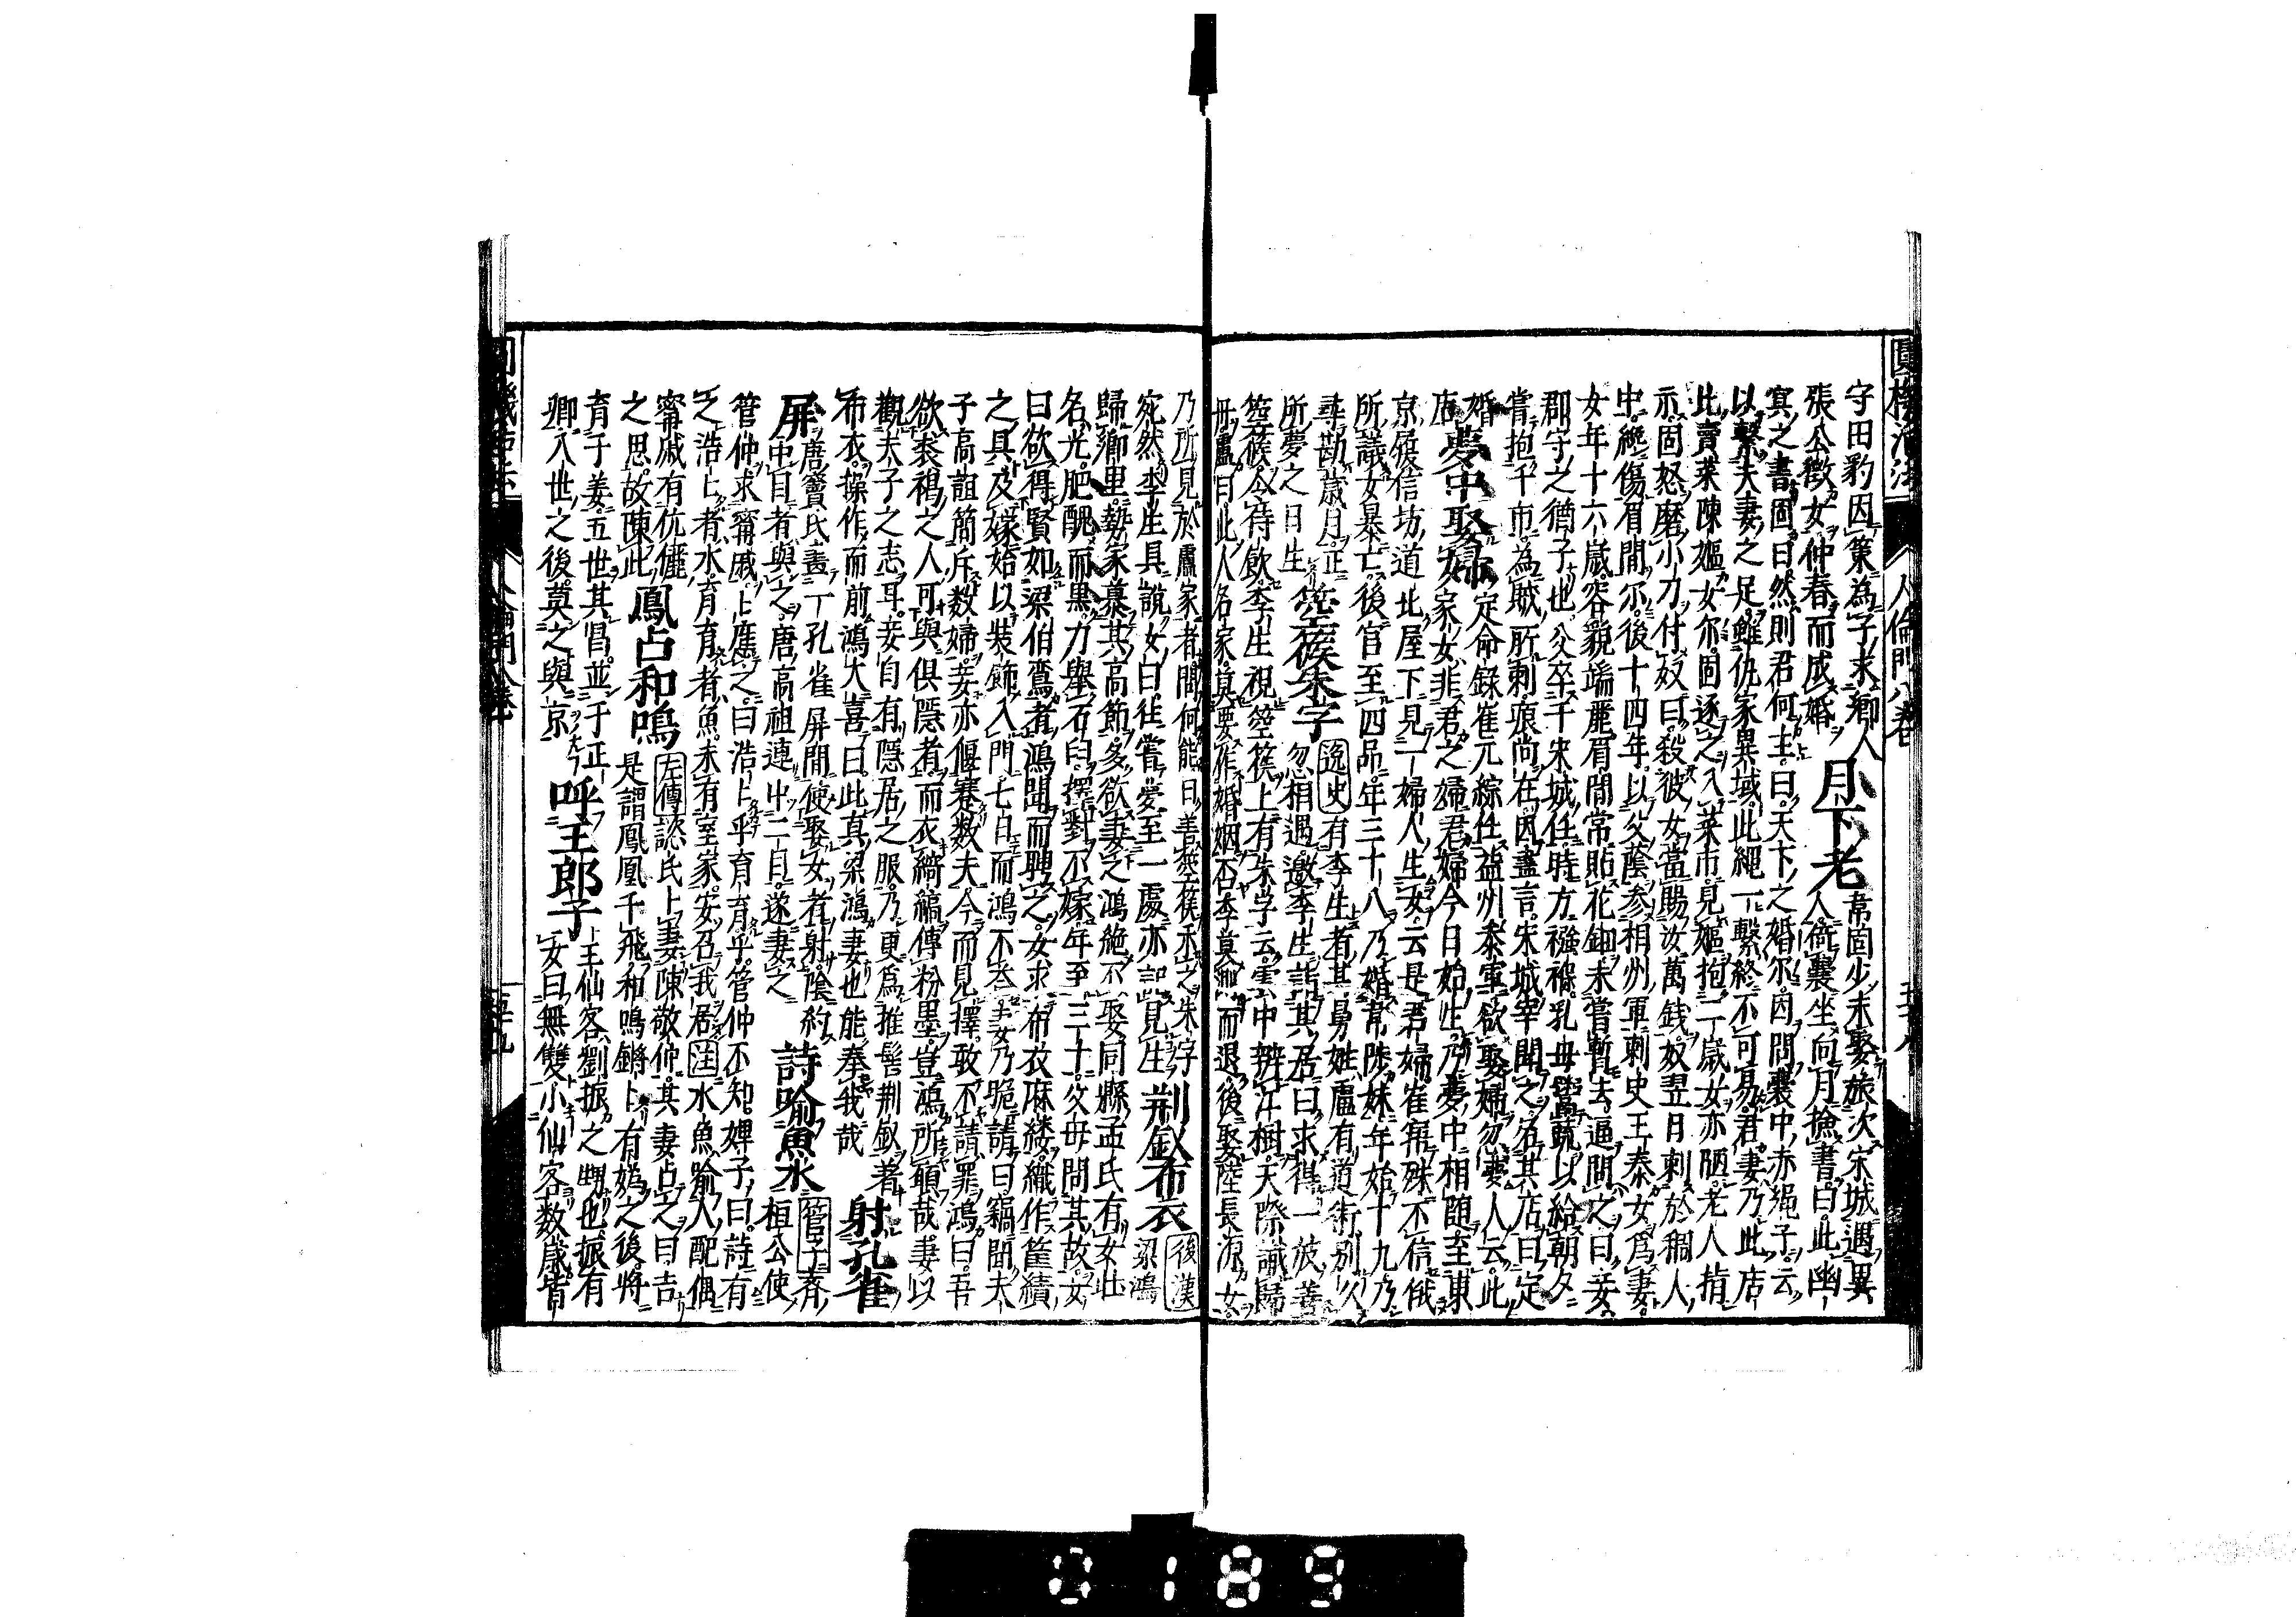 圓機活法 人倫門 八卷 三十八
守田豹因策為子求鄉人
張公徵女仲春而成婚
月下老
韋固少未娶旅次宋城遇異
人倚囊坐向月撿書曰此幽
冥之書固曰然則君何主曰天下之婚尔因問囊中赤繩子云
以繫夫妻之足雖仇家異域此繩一繫終不可易君妻乃此店
北賣菜陳嫗女尔固逐之入菜市見嫗抱二歲女亦陋老人指
示固怒磨小刀付奴曰殺彼女當賜汝萬錢奴翌日刺於稠人
中纔傷眉間尔後十四年以父蔭参相州軍刺史王泰女爲妻
女年十六歲容貌端麗眉間常貼花鈿未嘗暫去逼問之曰妾
郡守之猶子也父卒于宋城任時方襁褓乳母鬻蔬以給朝夕
嘗抱于市為賊所刺痕尚在因盡言宋城宰聞之名其店曰定
婚店
夢中娶婦
定命錄崔元綜任益州參軍欲娶婦勿夢人云此
家女非君之婦君婦今日始生乃夢中相随至東
京履信坊道北屋下見一婦人生女云是君婦崔寤殊不信俄
所議女暴亡後官至四品年三十八乃婚韋陟妹年始十九乃
尋勘歲月正
所夢之日生
箜篌朱字
逸史有李生者其舅姓盧有道術別久
忽相遇邀李生詣其居曰求得一妓善
箜篌令侍飲李生視箜篌上有朱字云雲中辨江樹天際識歸
舟盧曰此人名家莫要作婚姻否李莫測而退後娶陸長源女
乃所見於盧家者問何能曰善箜篌丞之朱字
宛然李生具說女曰往嘗夢至一處亦記見生
荆釵布衣
後漢
梁鴻
歸鄉里勢家慕其高節多欲妻之鴻絶不娶同縣孟氏有女壯
名光肥醜而黒力舉石臼擇對不嫁年至三十父母問其故女
曰欲得賢如梁伯鸞者鴻聞而聘之女求布衣麻縷織作筐績
之具及嫁始以裝飾入門七日而鴻不荅妻乃跪請曰竊聞夫
子高誼簡斥数婦妾亦偃蹇数夫今而見擇敢不請罪鴻曰吾
欲裘褐之人可與俱隱者而衣綺縞傳粉墨豈鴻所願哉妻以
觀夫子之志耳妾自有隱居之服乃更爲推髻荆釵著
布衣操作而前鴻大喜曰此真梁鴻妻也能奉我哉
射孔雀
屏
唐竇氏畫二孔雀屏間使娶女者射陰約
中目者與之唐高祖連中二目遂妻之
詩喻魚水
管子齊
桓公使
管仲求甯戚戚應之曰浩浩乎育育乎管仲不知婢子曰詩有
之浩浩者水育育者魚未有室家安召我居注水魚喻人配偶
甯戚有伉儷
之思故陳此
鳳占和鳴
左傳懿氏卜妻陳敬仲其妻占之曰吉
是謂鳳凰于飛和鳴鏘鏘有媯之後將
育于姜五世其昌並于正
卿八世之後莫之與京
呼王郎子
王仙客劉振之甥也振有
女曰無雙小仙客数歲皆
圓機活法 人倫門 八卷 三十九
0189